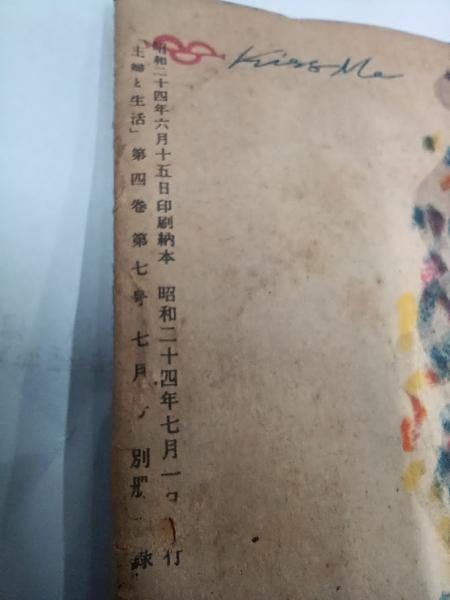 Kiss Me
昭和二十四年六月十五日印刷納本 昭和二十四年七月一 行
「主婦と生活」第四巻第七号七月 別册 録